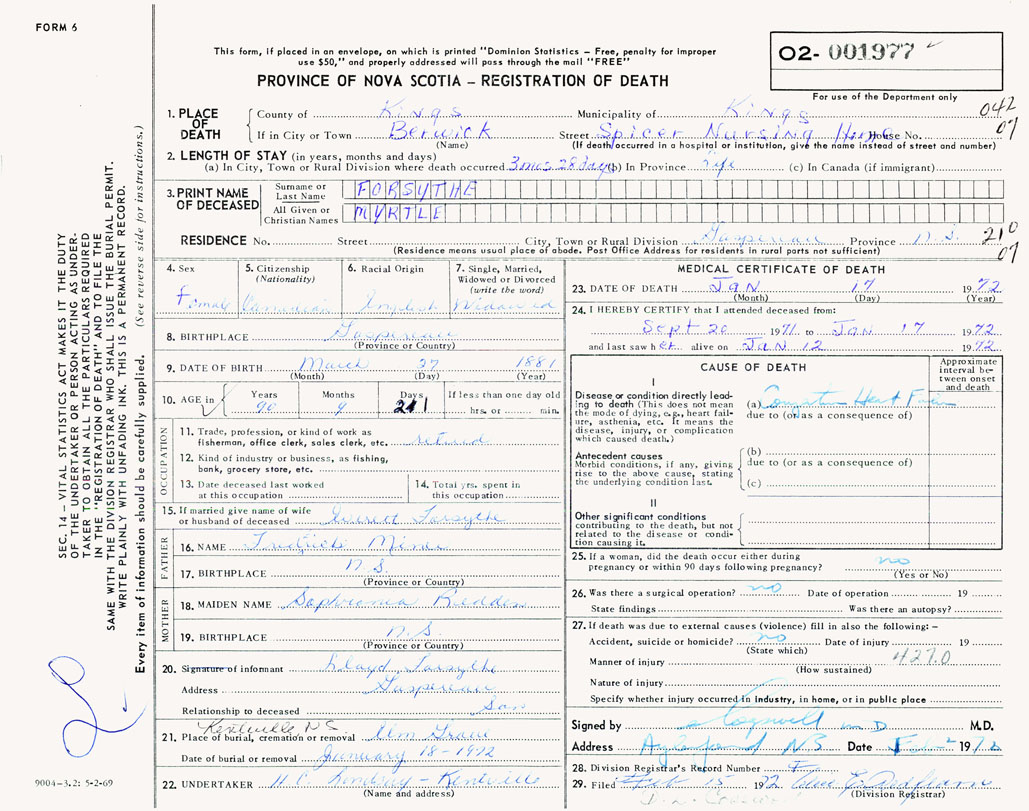 FORM 6
This form, if placed in an envelope, on which is printed "Dominion Statistics – Free, penalty for improper
use $50," and properly addressed will pass through the mail "FREE"
PROVINCE OF NOVA SCOTIA – REGISTRATION OF DEATH
02- 001977
For use of the Department only
SEC. 14 – VITAL STATISTICS ACT MAKES IT THE DUTY
OF THE UNDERTAKER OR PERSON ACTING AS UNDER-
TAKER TO OBTAIN ALL THE PARTICULARS REQUIRED
IN THE "REGISTRATION OF DEATH" AND TO FILE THE
SAME WITH THE DIVISION REGISTRAR WHO SHALL ISSUE THE BURIAL PERMIT.
WRITE PLAINLY WITH UNFADING INK. THIS IS A PERMANENT RECORD.
Every item of information should be carefully supplied. (See reverse side for instructions.)
1. PLACE OF DEATH County of Kings Municipality of Kings 042
If in City or Town Berwick Street Spicer Nursing Home House No. 07
(Name) (If death occurred in a hospital or institution, give the name instead of street and number)
2. LENGTH OF STAY (in years, months and days)
(a) In City, Town or Rural Division where death occurred 3 mos 28 days (b) In Province Life (c) In Canada (if immigrant)
3. PRINT NAME OF DECEASED Surname or Last Name FORSYTHE
All Given or Christian Names MYRTLE
RESIDENCE No. Street City, Town or Rural Division Gaspereau Province N.S. 210
(Residence means usual place of abode. Post Office Address for residents in rural parts not sufficient) 07
4. Sex Female
5. Citizenship (Nationality) Canadian
6. Racial Origin English
7. Single, Married, Widowed or Divorced (write the word) Widowed
8. BIRTHPLACE Gaspereau
(Province or Country)
9. DATE OF BIRTH March 27 1881
(Month) (Day) (Year)
10. AGE in Years 90 Months 9 Days 21 If less than one day old hrs. or min.
OCCUPATION
11. Trade, profession, or kind of work as
fisherman, office clerk, sales clerk, etc. retired
12. Kind of industry or business, as fishing,
bank, grocery store, etc.
13. Date deceased last worked
at this occupation
14. Total yrs. spent in
this occupation
15. If married give name of wife
or husband of deceased Everett Forsythe
FATHER
16. NAME Fredrick Miner
17. BIRTHPLACE N.S.
(Province or Country)
MOTHER
18. MAIDEN NAME Sophronia Redden
19. BIRTHPLACE N.S.
(Province or Country)
20. Signature of informant Lloyd Forsythe
Address Gaspereau
Relationship to deceased Son
Kentville NS
21. Place of burial, cremation or removal Elm Grove
Date of burial or removal January 18-1972
22. UNDERTAKER H.C. Lindsay - Kentville
(Name and address)
9004-3.2: 5-2-69
MEDICAL CERTIFICATE OF DEATH
23. DATE OF DEATH JAN 17 1972
(Month) (Day) (Year)
24. I HEREBY CERTIFY that I attended deceased from:
Sept 20 1971 to JAN 17 1972
and last saw her alive on JAN 12 1972
CAUSE OF DEATH
Approximate interval between onset and death
I
Disease or condition directly lead-
ing to death (This does not mean
the mode of dying, e.g., heart fail-
ure, asthenia, etc. It means the
disease, injury, or complication
which caused death.)
(a) Heart
due to (or as a consequence of)
Antecedent causes
Morbid conditions, if any, giving
rise to the above cause, stating
the underlying condition last.
(b)
due to (or as a consequence of)
(c)
II
Other significant conditions
contributing to the death, but not
related to the disease or condi-
tion causing it.
25. If a woman, did the death occur either during
pregnancy or within 90 days following pregnancy? no
(Yes or No)
26. Was there a surgical operation? no Date of operation 19
State findings Was there an autopsy?
27. If death was due to external causes (violence) fill in also the following: –
Accident, suicide or homicide? no Date of injury 19
(State which)
Manner of injury 427.0
(How sustained)
Nature of injury
Specify whether injury occurred in industry, in home, or in public place
Signed by M.D. M.D.
Address Date 1972
28. Division Registrar's Record Number
29. Filed Feb 15 1972
(Division Registrar)